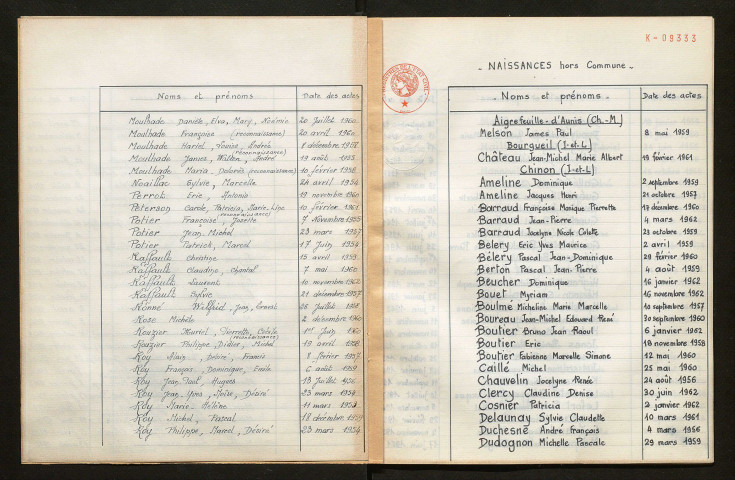 Noms et prénoms Date des actes
Moulhade Danièle, Elva, Mary, Noémie 20 Juillet 1960
Moulhade Françoise (reconnaissance) 20 avril 1960
Moulhade Muriel, Louise, Andrée 1 décembre 1958
(reconnaissance)
Moulhade André 19 août 1955
Moulhade Maria, Dolorès (reconnaissance) 10 février 1958
Noaillac Sylvie, Marcelle 24 avril 1954
Perrot Eric, Antonio 19 novembre 1960
Peterson Carole, Patricia, Marie, Line 10 février 1961
(reconnaissance)
Potier Françoise, Josette 7 Novembre 1955
Potier Jean-Michel 23 mars 1957
Potier Patrick, Marcel 17 Juin 1954
Raffault Christine 15 avril 1959
Raffault Claudine, Chantal 7 mai 1960
Raffault Laurent 10 novembre 1962
Raffault Sylvie 21 décembre 1957
Wilfrid, Jean, Ernest 26 Juillet 1958
Rose Michèle 2 décembre 1960
Rouzier Muriel, Pierrette, Colette 1er Juin 1960
(reconnaissance)
Rouzier Philippe, Didier, Michel 19 avril 1958
Roy Alain, Désiré, Francis 8 février 1957
Roy François, Dominique, Emile 6 août 1959
Roy Jean, Paul, Hugues 18 Juillet 1956
Roy Jean, Yves, Désiré 23 mars 1954
Roy Marie-Hélène 11 mars 1953
Roy Michel, Pascal 18 décembre 1959
Roy Philippe, Marcel, Désiré 23 mars 1954
K-09333
- NAISSANCES hors Commune -
Noms et prénoms - Date des actes
Aigrefeuille-d'Aunis (Ch.-M.)
Melson James Paul 8 mai 1959
Bourgueil (I-et-L)
Château Jean-Michel Marie Albert 19 février 1961
Chinon (I-et-L)
Ameline Dominique 2 septembre 1959
Ameline Jacques Henri 21 octobre 1957
Barraud Françoise Monique Pierrette 17 décembre 1960
Barraud Jean-Pierre 4 mars 1962
Barraud Jocelyne Nicole Colette 23 octobre 1959
Belery Eric Yves Maurice 2 avril 1959
Bélery Pascal Jean-Dominique 29 février 1960
Berton Pascal Jean-Pierre 4 août 1959
Beucher Dominique 16 janvier 1962
Bouet Myriam 16 novembre 1962
Boulmé Micheline Marie Marcelle 10 septembre 1957
Boureau Jean-Michel Edouard René 30 septembre 1960
Boutier Bruno Jean Raoul 6 janvier 1962
Boutier Eric 18 novembre 1958
Boutier Fabienne Marcelle Simone 12 mai 1960
Caillé Michel 25 mai 1960
Chauvelin Jocelyne Renée 24 août 1956
Clercy Claudine Denise 30 juin 1962
Cosnier Patricia 2 janvier 1962
Delaunay Sylvie Claudette 10 mars 1961
Duchesne André François 4 mars 1956
Dudognon Michelle Pascale 29 mars 1959